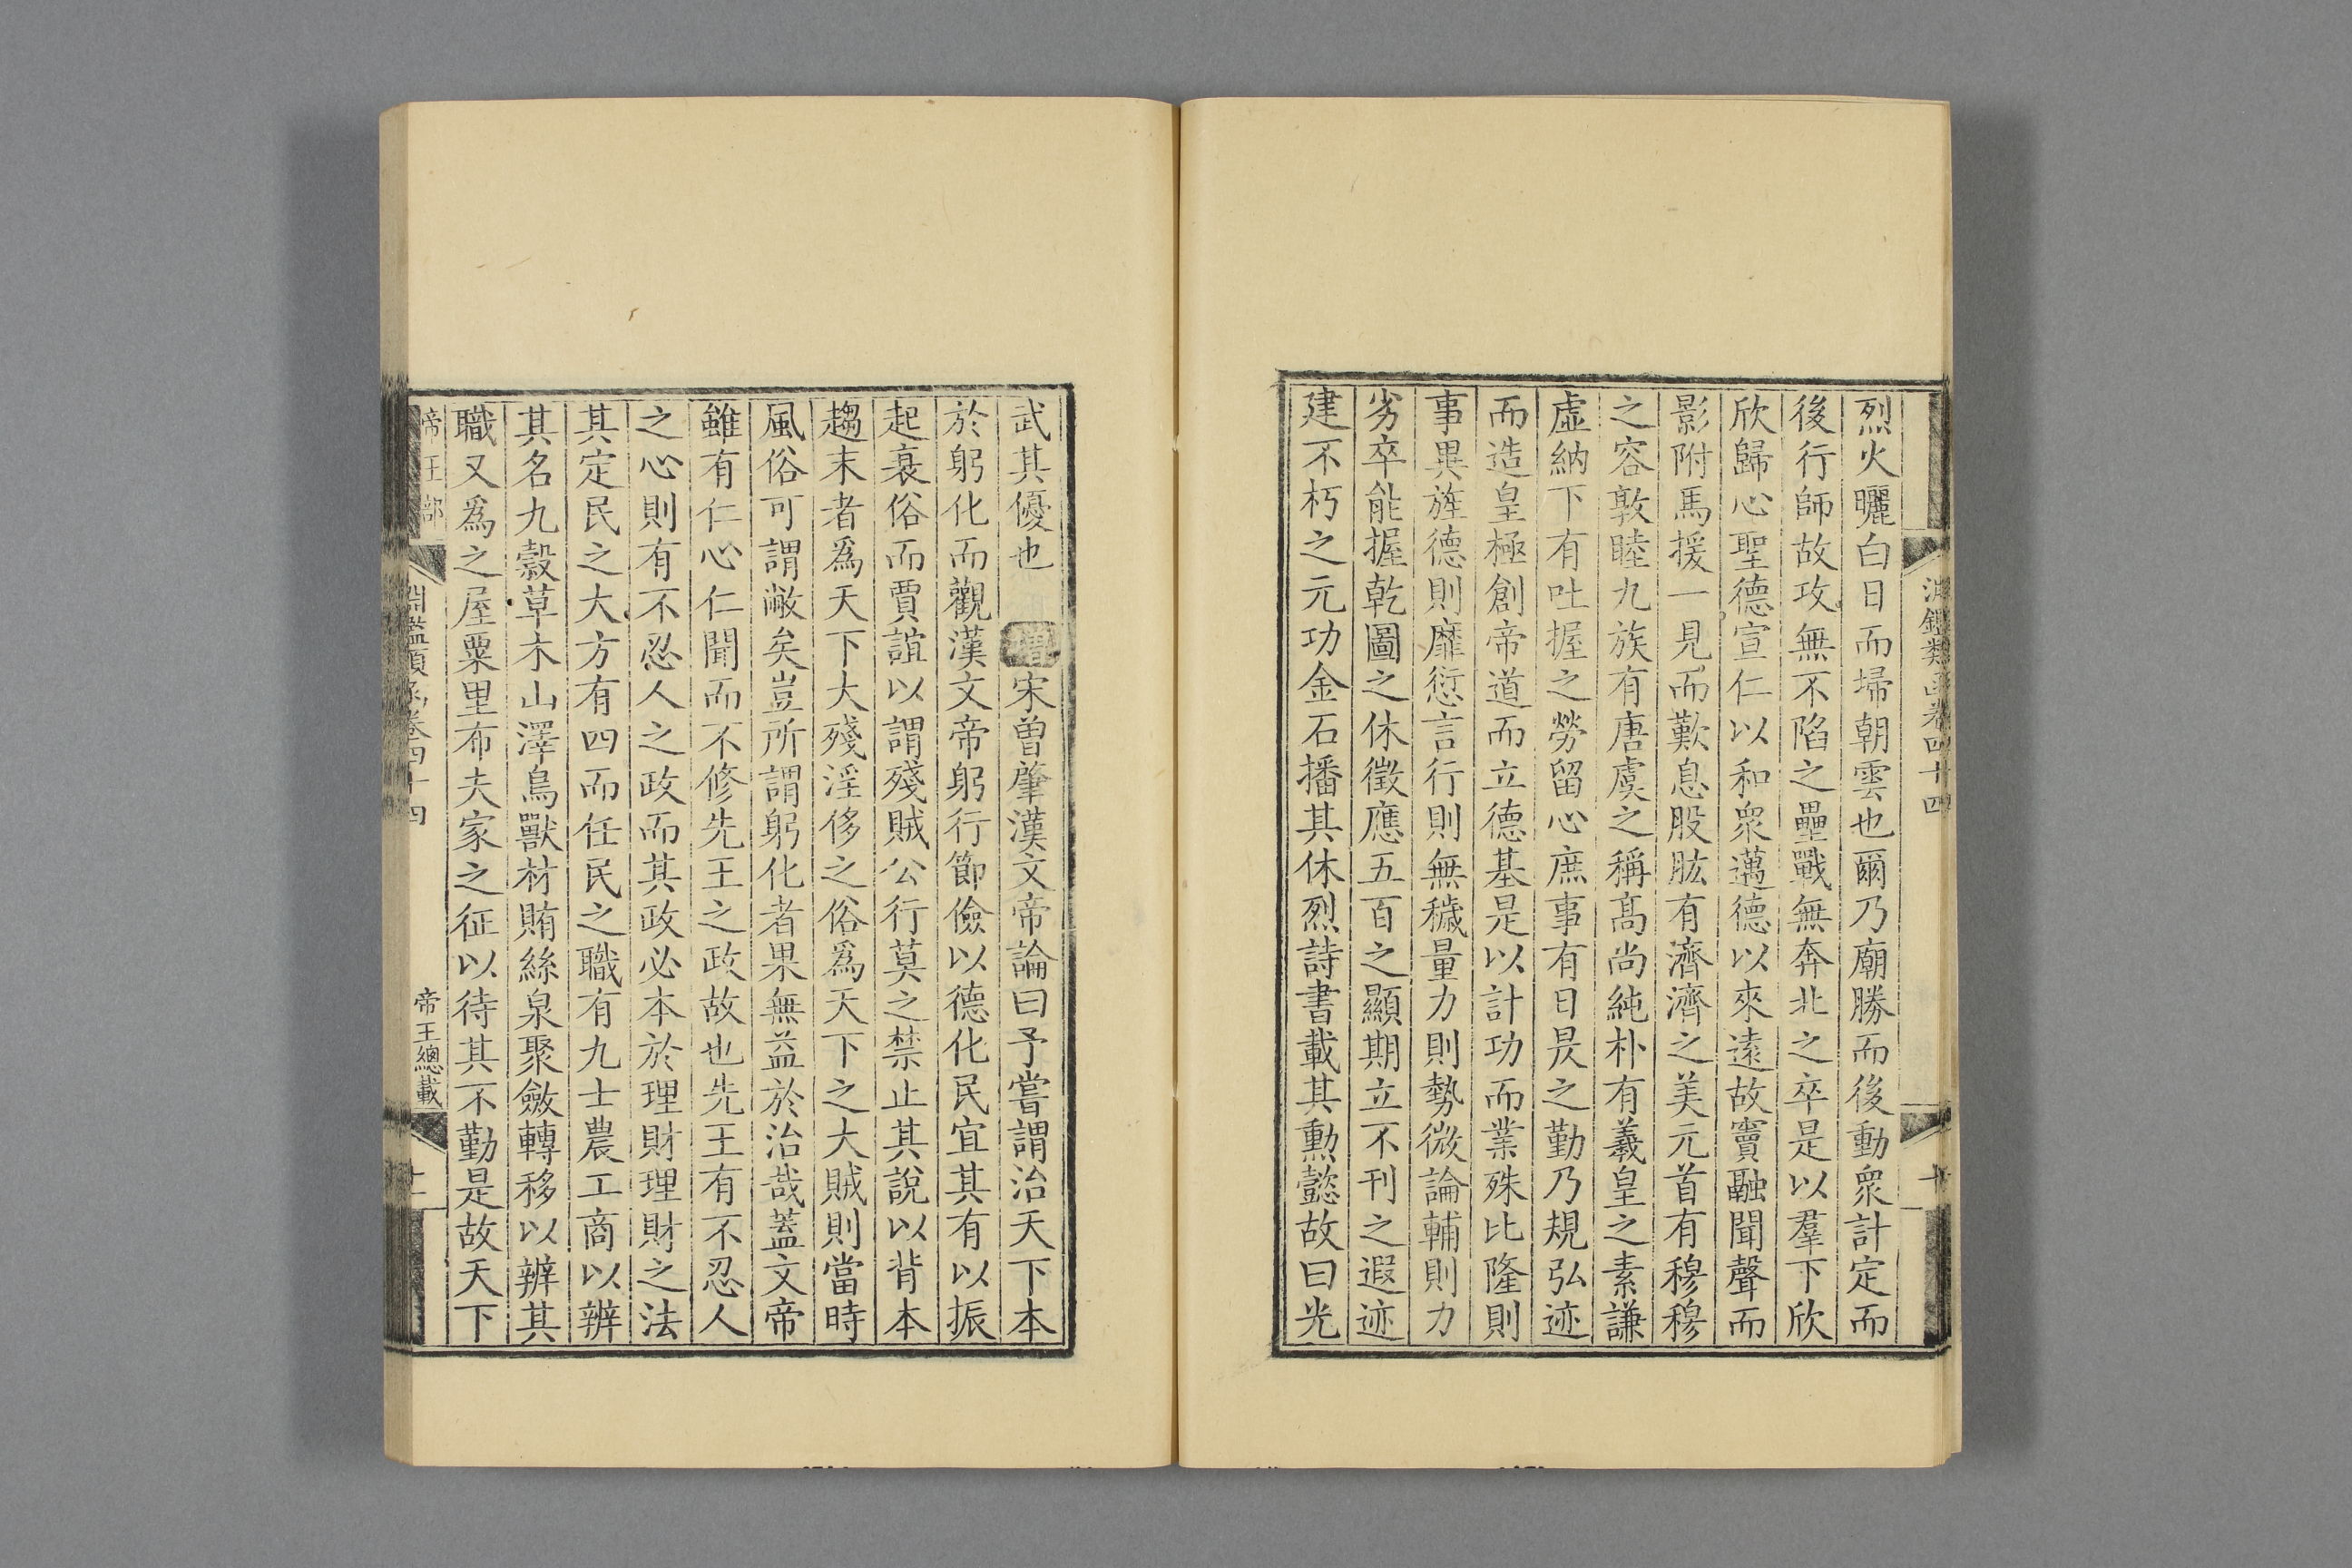 淵鑑類函卷四十四
十
烈火曬白日而埽朝雲也爾乃廟勝而後動衆計定而
後行師故攻無不陷之壘戰無奔北之卒是以羣下欣
欣歸心聖德宣仁以和衆邁德以來遠故竇融聞聲而
影附馬援一見而歎息股肱有濟濟之美元首有穆穆
之容敦睦九族有唐虞之稱髙尚純朴有羲皇之素謙
虛納下有吐握之勞留心庶事有日昃之勤乃規弘迹
而造皇極創帝道而立德基是以計功而業殊比隆則
事異旌德則靡愆言行則無穢量力則勢微論輔則力
劣卒能握乾圖之休徵應五百之顯期立不刊之遐迹
建不朽之元功金石播其休烈詩書載其勳懿故曰光
武其優也 增宋曾肇漢文帝論曰予嘗謂治天下本
於躬化而觀漢文帝躬行節儉以德化民宜其有以振
起衰俗而賈誼以謂殘賊公行莫之禁止其說以背本
趨末者爲天下大殘淫侈之俗爲天下之大賊則當時
風俗可謂敝矣豈所謂躬化者果無益於治哉蓋文帝
雖有仁心仁聞而不修先王之政故也先王有不忍人
之心則有不忍人之政而其政必本於理財理財之法
其定民之大方有四而任民之職有九士農工商以辨
其名九穀草木山澤鳥獸材賄絲枲聚斂轉移以辨其
職又爲之屋粟里布夫家之征以待其不勤是故天下
帝王部
淵鑑類函卷四十四
帝王總載
十一